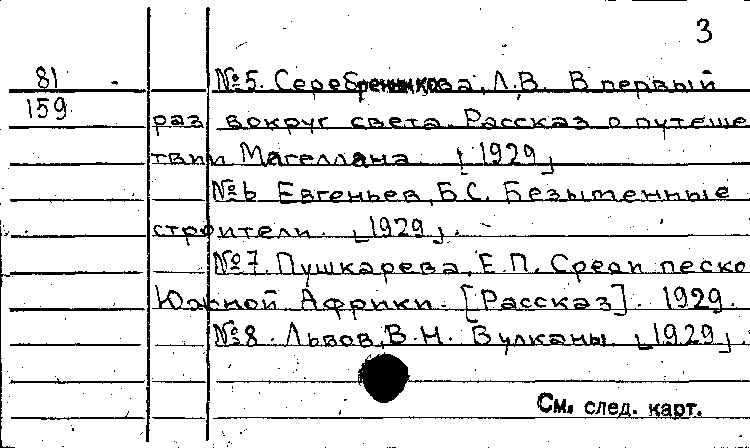 3
81 № 5. Серебренникова, Л.В. В первый
159 раз вокруг света. Рассказ о путеше
твии Магеллана. [1929]
№ 6 Евгеньев, Б.С. Безыменные
строители. [1929].
№ 7. Пушкарева, Е.П. Среди песко
Южной Африки. [Рассказ]. 1929.
№ 8. Львов, В.Н. Вулканы. [1929].
См. след. карт.